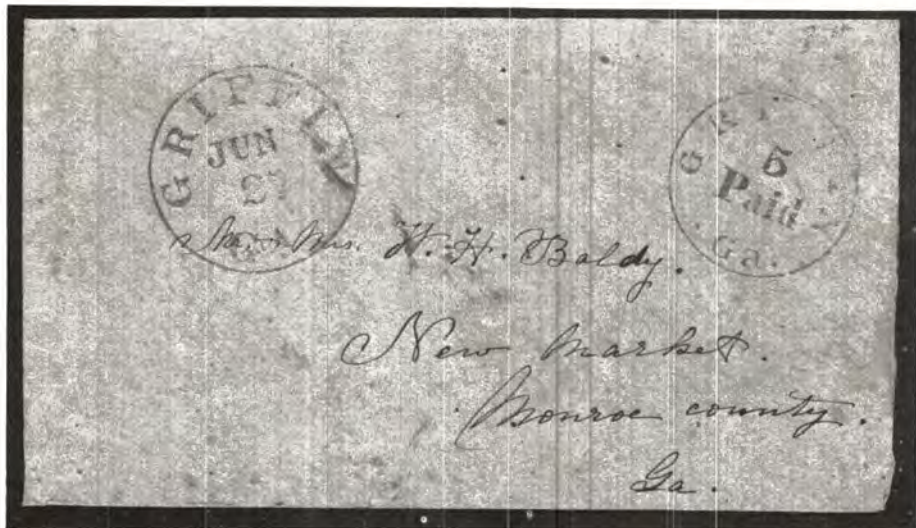 GRIFFIN
JUN
GRIFFIN
5
Paid
Ga.
Mrs. W. H. Baldy.
New Market.
Monroe county.
Ga.